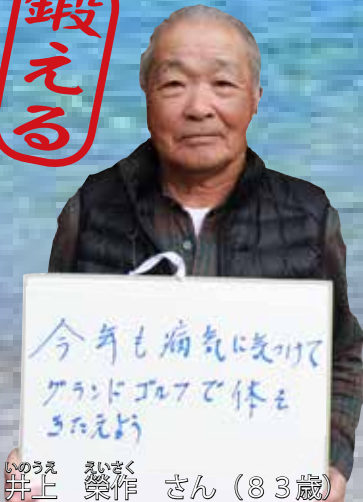 鍛える
今年も病気に気つけて
グランドゴルフで体を
きたえよう
いのうえ えいさく
井上 榮作 さん（８３歳）